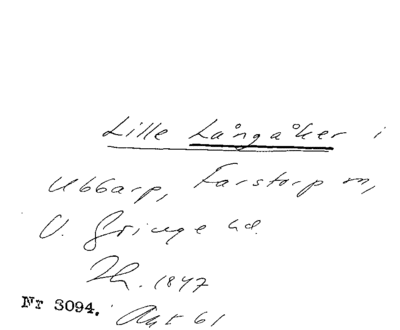 Lille Långåker i
Ubbarp, Farstorp sn,
V. Göinge hd.
Th. 1847
Nr 3094. Akt 61